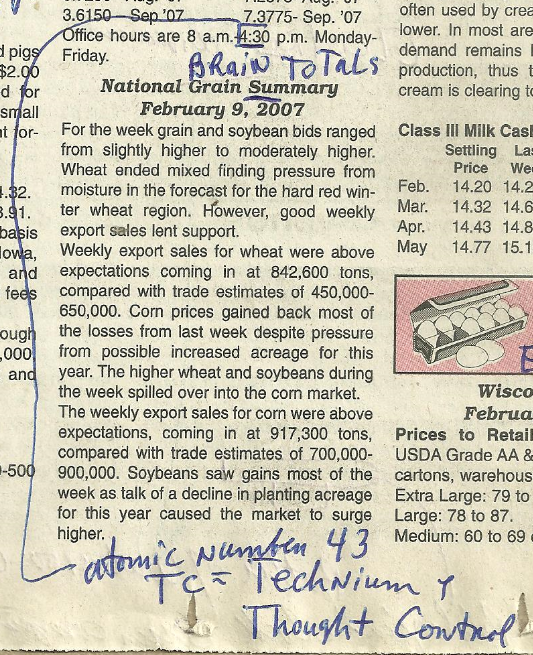 d pigs
$2.00
d for
small
t for-
.32.
.91.
basis
Iowa,
and
fees
ough
,000
and
0-500
3.6150 Sep '07 7.3775- Sep. '07
Office hours are 8 a.m.-4:30 p.m. Monday-
Friday.
BRAIN TOTALS
National Grain Summary
February 9, 2007
For the week grain and soybean bids ranged
from slightly higher to moderately higher.
Wheat ended mixed finding pressure from
moisture in the forecast for the hard red win-
ter wheat region. However, good weekly
export sales lent support.
Weekly export sales for wheat were above
expectations coming in at 842,600 tons,
compared with trade estimates of 450,000-
650,000. Corn prices gained back most of
the losses from last week despite pressure
from possible increased acreage for this
year. The higher wheat and soybeans during
the week spilled over into the corn market.
The weekly export sales for corn were above
expectations, coming in at 917,300 tons,
compared with trade estimates of 700,000-
900,000. Soybeans saw gains most of the
week as talk of a decline in planting acreage
for this year caused the market to surge
higher.
atomic Number 43
TC = Technium &
Thought Control
often used by crea
lower. In most are
demand remains
production, thus t
cream is clearing to
Class III Milk Cash
Settling Las
Price We
Feb. 14.20 14.2
Mar. 14.32 14.6
Apr. 14.43 14.8
May 14.77 15.1
Wisco
Februa
Prices to Retail
USDA Grade AA &
cartons, warehous
Extra Large: 79 to
Large: 78 to 87.
Medium: 60 to 69